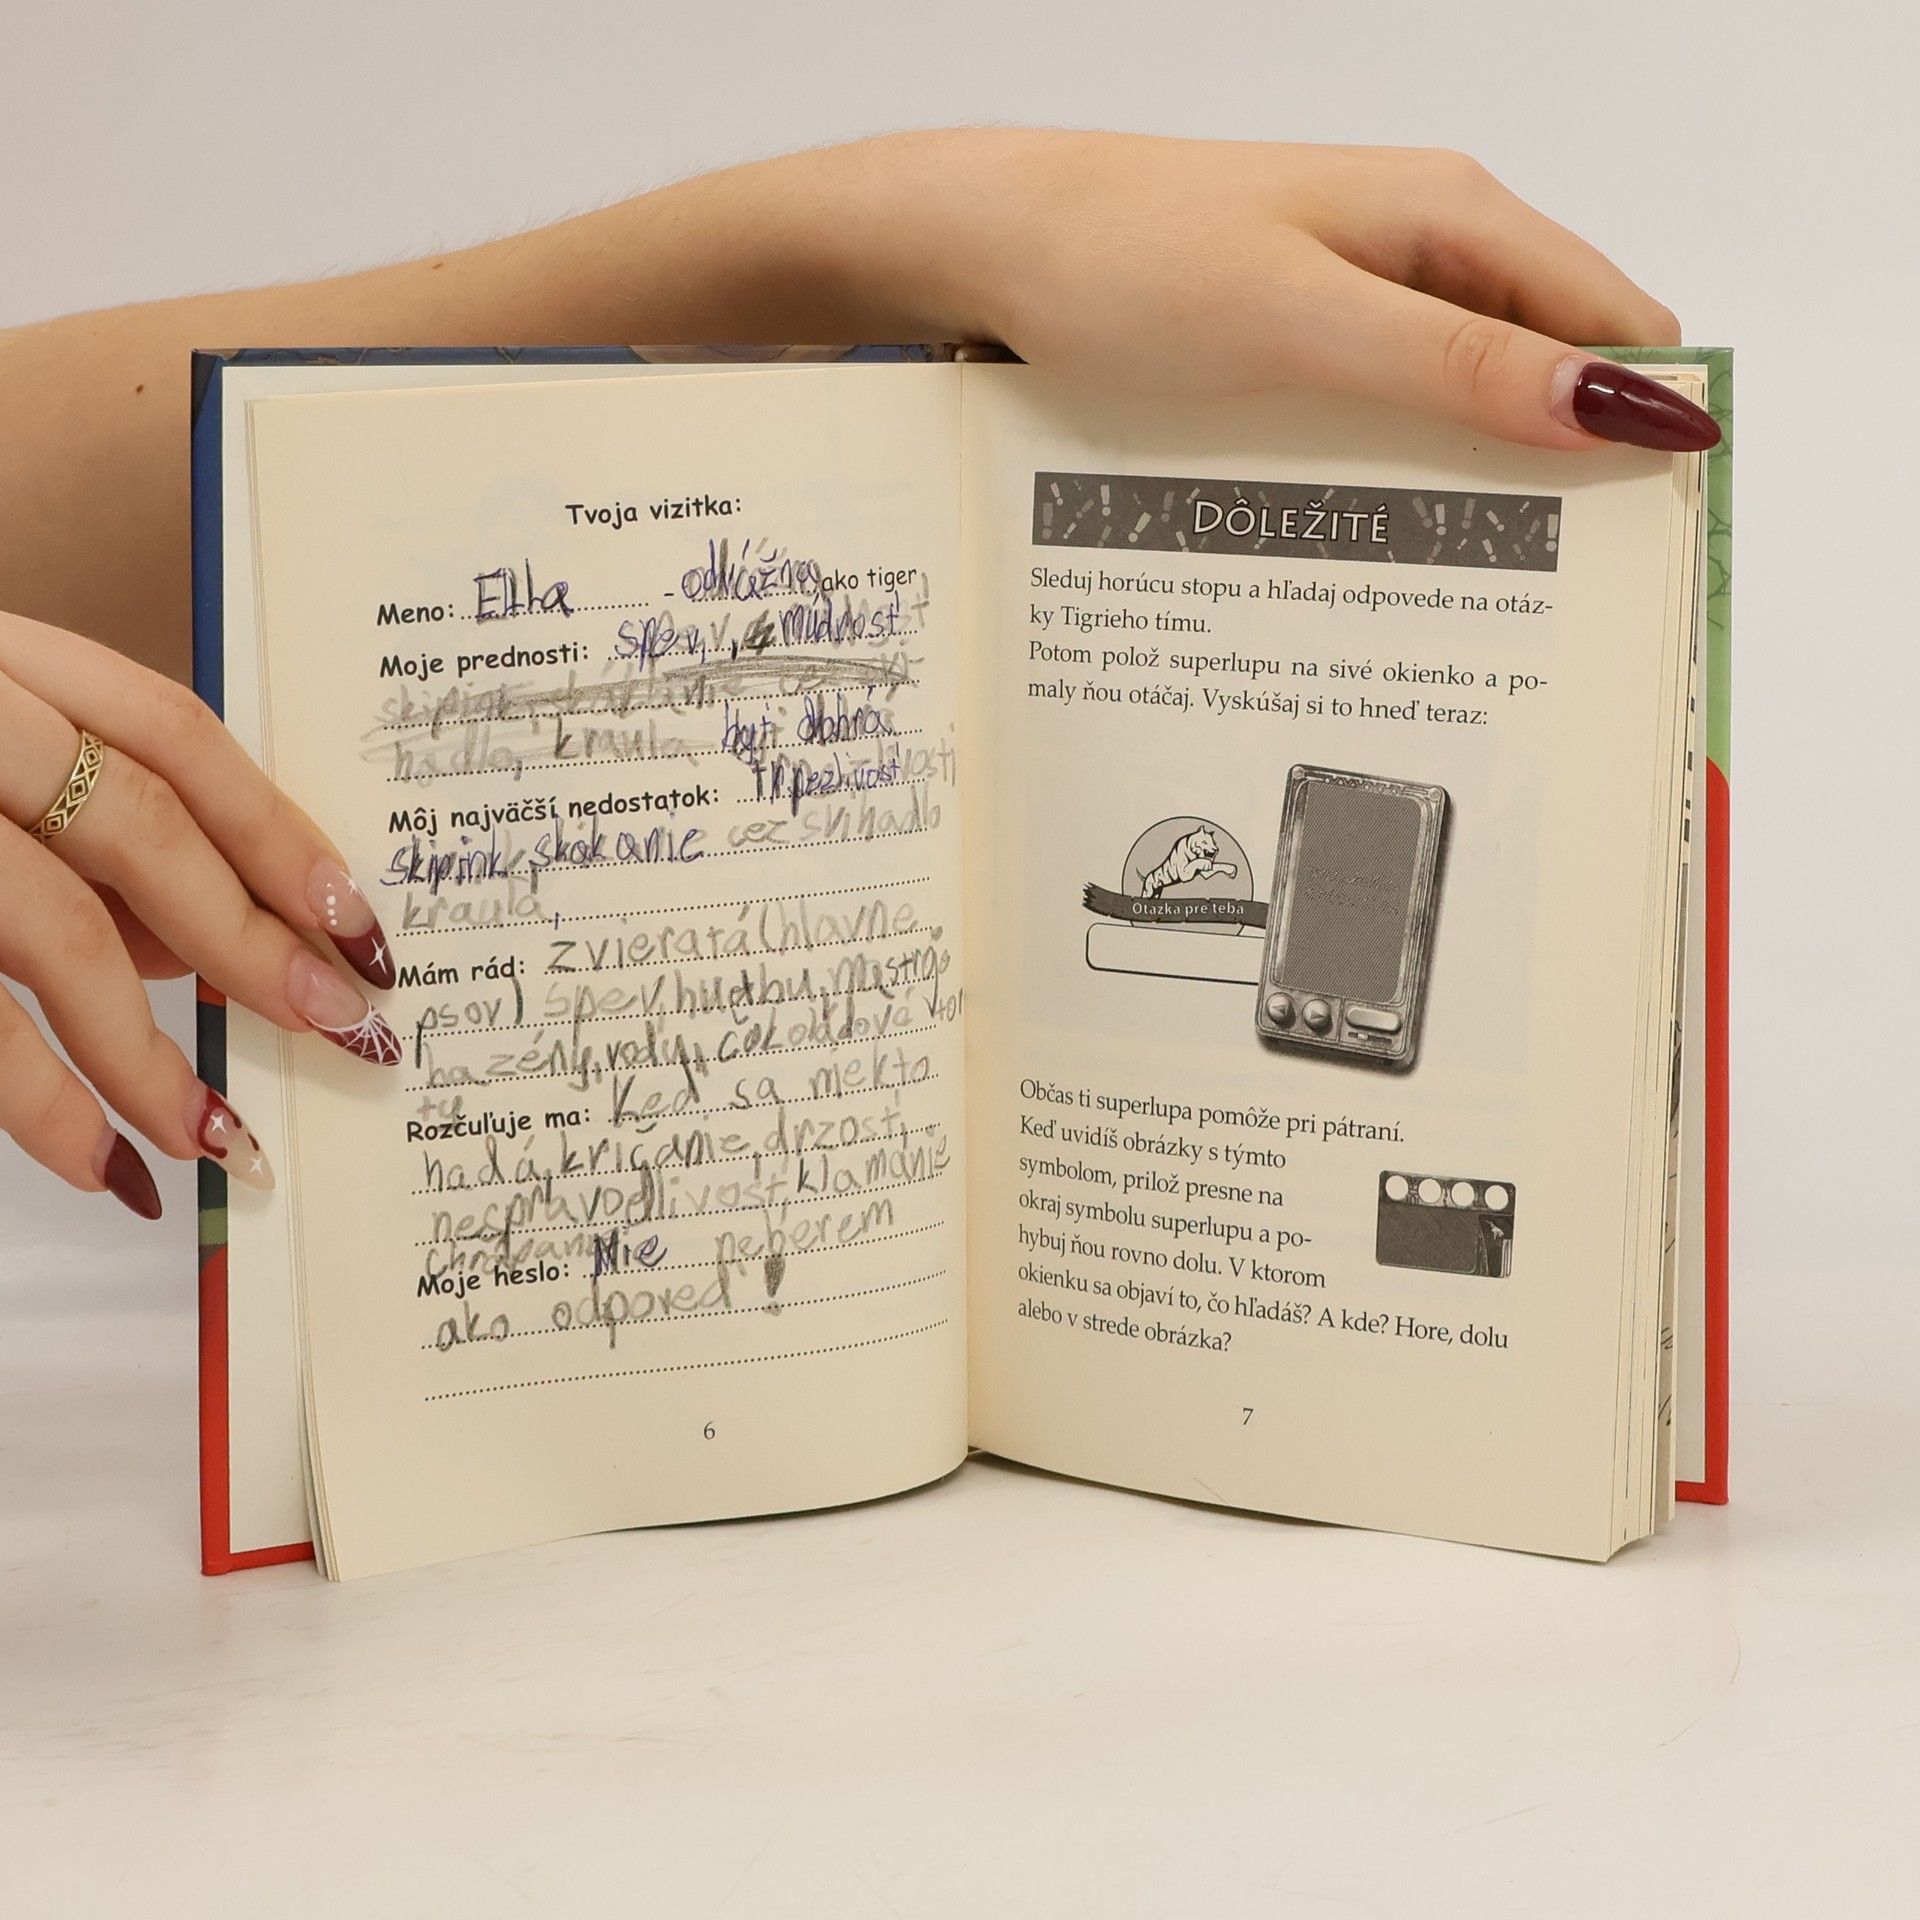 Tvoja vizitka:
Meno: Ella - odvážna ako tiger
Moje prednosti: spev, múdrosť
hadlo, kraula byť dobrá
Môj najväčší nedostatok: trpezlivosť
skipink, skákanie cez švihadlo
kraula,
Mám rád: zvieratá (hlavne
psov) spev, hudbu,
hazény, vody, čokoládové tor
ty
Rozčuľuje ma: Keď sa niekto
hadá, kričanie, drzosť,
nespravodlivosť, klamanie
Moje heslo: Nie neberem
ako odpoveď!
6
DÔLEŽITÉ
Sleduj horúcu stopu a hľadaj odpovede na otáz-
ky Tigrieho tímu.
Potom polož superlupu na sivé okienko a po-
maly ňou otáčaj. Vyskúšaj si to hneď teraz:
Otázka pre teba
Občas ti superlupa pomôže pri pátraní.
Keď uvidíš obrázky s týmto
symbolom, prilož presne na
okraj symbolu superlupu a po-
hybuj ňou rovno dolu. V ktorom
okienku sa objaví to, čo hľadáš? A kde? Hore, dolu
alebo v strede obrázka?
7